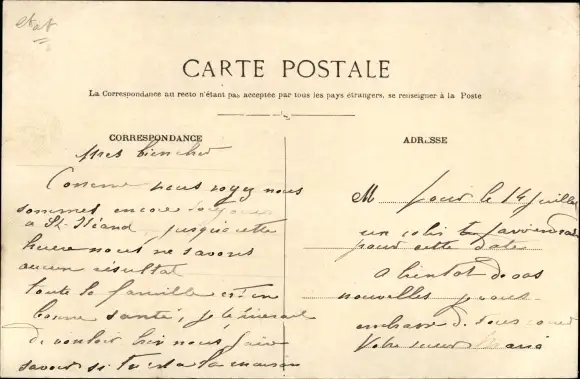 CARTE POSTALE
La Correspondance au recto n'étant pas acceptée par tous les pays étrangers, se renseigner à la Poste
CORRESPONDANCE
Mes bien cher
Comme vous voyez nous
sommes encore toujours
a St jusqu'a cette
heure nous ne savons
aucun résultat
toute la famille est en
bonne santé, je te
de vouloir bien nous faire
savoir si tu a la maison
ADRESSE
M pour le 14 juillet
un colis
pour cette date
A bientot de vos
nouvelles je vous
embrasse de tous coeur
Votre soeur Maria